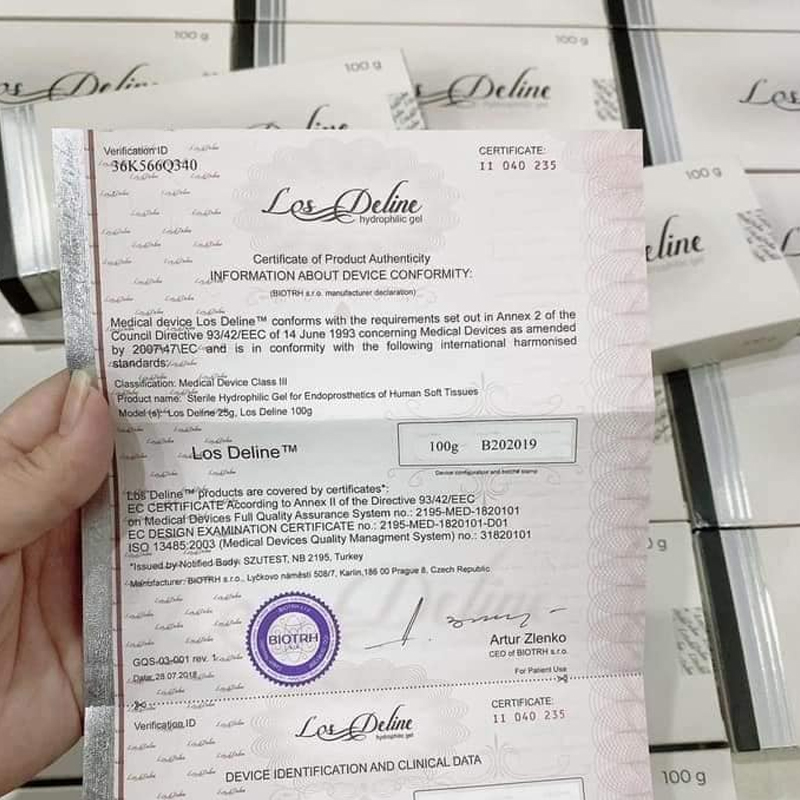 100 g
100 g
100 g
Deline
Deline
hydrophilic gel
Los
100 g
eline
hydrophilic gel
Verification ID
36K566Q340
CERTIFICATE:
11 040 235
Los Deline
hydrophilic gel
Certificate of Product Authenticity
INFORMATION ABOUT DEVICE CONFORMITY:
(BIOTRH s.r.o. manufacturer declaration)
Medical device Los Deline™ conforms with the requirements set out in Annex 2 of the
Council Directive 93/42/EEC of 14 June 1993 concerning Medical Devices as amended
by 2007\47\EC and is in conformity with the following international harmonised
standards:
Classification: Medical Device Class III
Product name: Sterile Hydrophilic Gel for Endoprosthetics of Human Soft Tissues
Model (s): Los Deline 25g, Los Deline 100g
Los Deline™
100g B202019
Device configuration and batch# stamp
Los Deline™ products are covered by certificates*:
EC CERTIFICATE According to Annex II of the Directive 93/42/EEC
on Medical Devices Full Quality Assurance System no.: 2195-MED-1820101
EC DESIGN EXAMINATION CERTIFICATE no.: 2195-MED-1820101-D01
ISO 13485:2003 (Medical Devices Quality Managment System) no.: 31820101
*Issued by Notified Body: SZUTEST, NB 2195, Turkey
Manufacturer: BIOTRH s.r.o., Lyčkovo náměstí 508/7, Karlin,186 00 Prague 8, Czech Republic
BIOTRH
Artur Zlenko
CEO of BIOTRH s.r.o.
GQS-03-001 rev. 1
Date: 28.07.2018
For Patient Use
Verification ID
CERTIFICATE:
11 040 235
Los Deline
hydrophilic gel
DEVICE IDENTIFICATION AND CLINICAL DATA
100 g